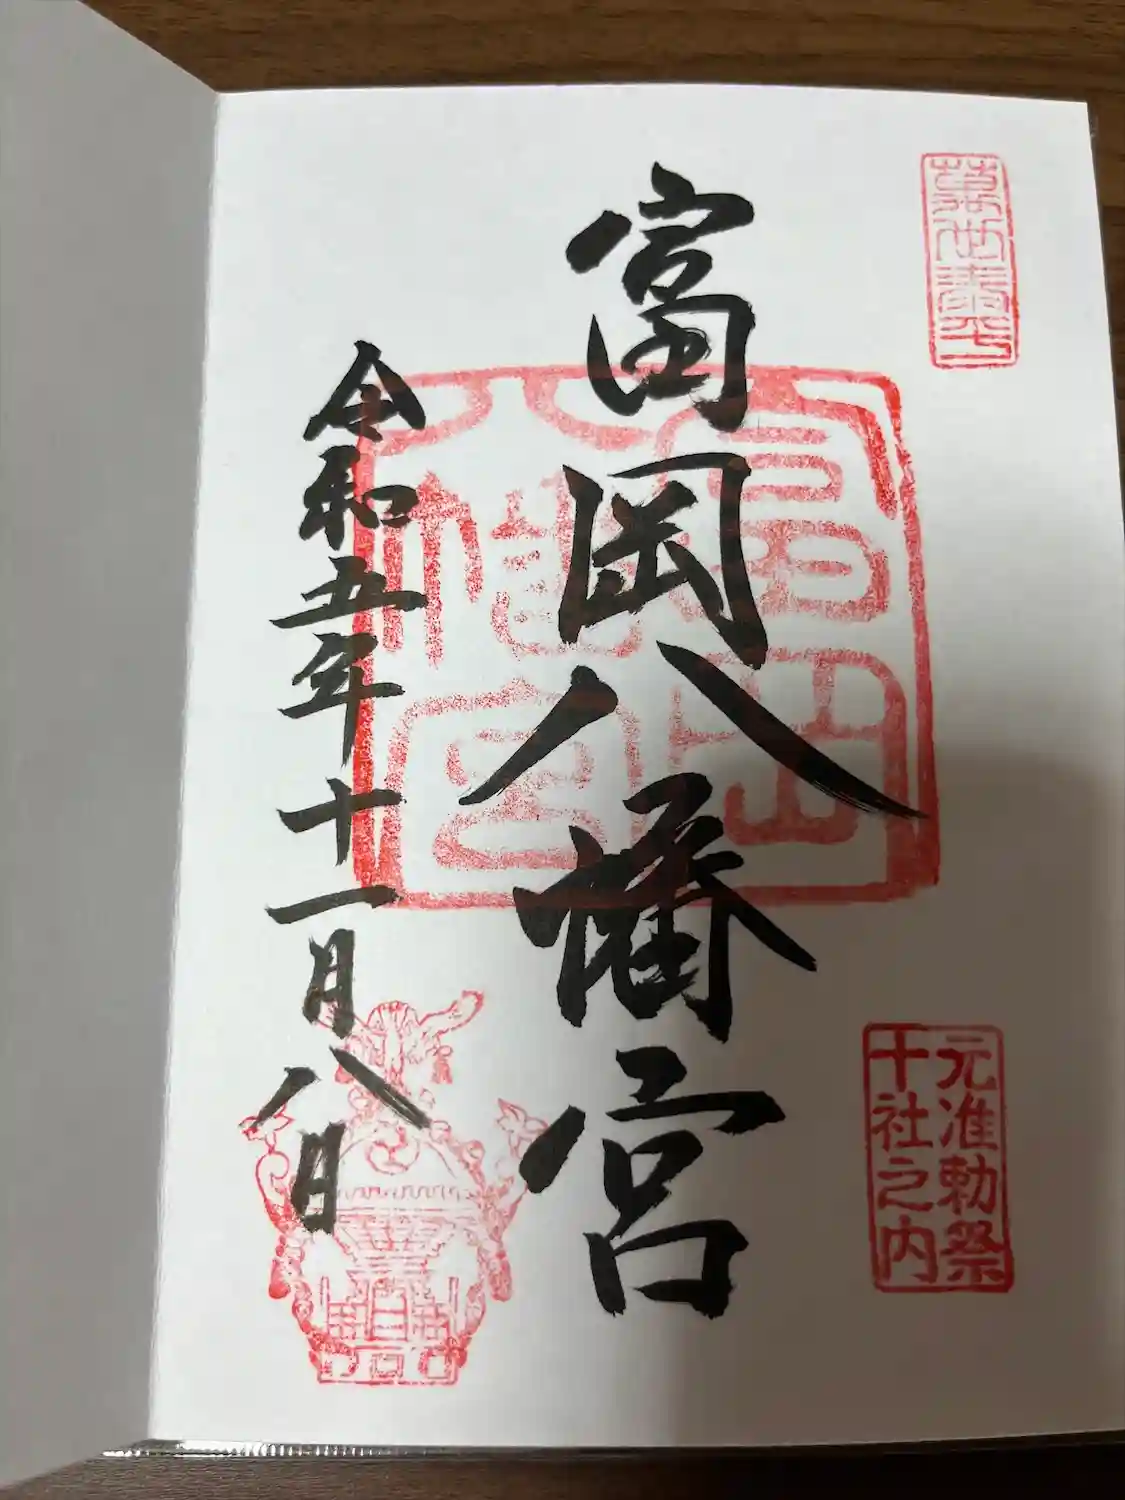 元准勅祭
十社之内
富岡八幡宮
富岡
八幡宮
令和五年十一月八日